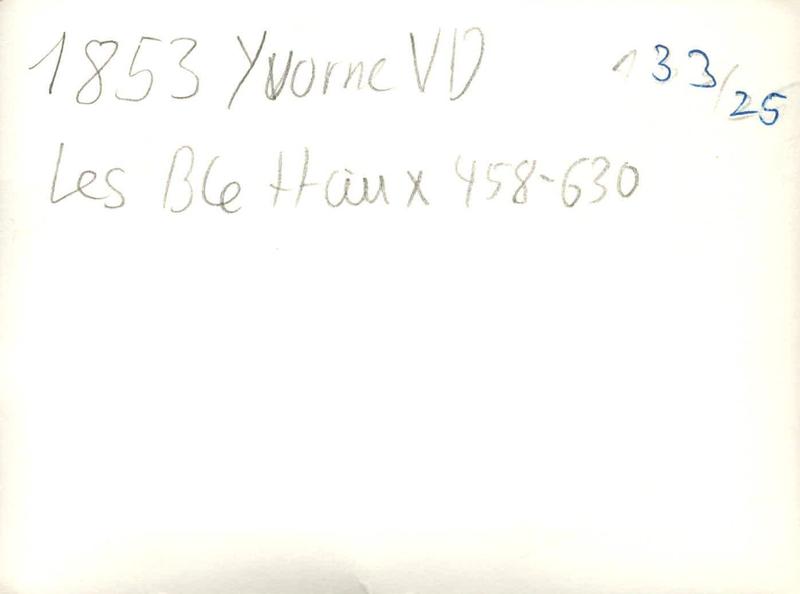 1853 Yvorne VD
133/25
Les 458-630